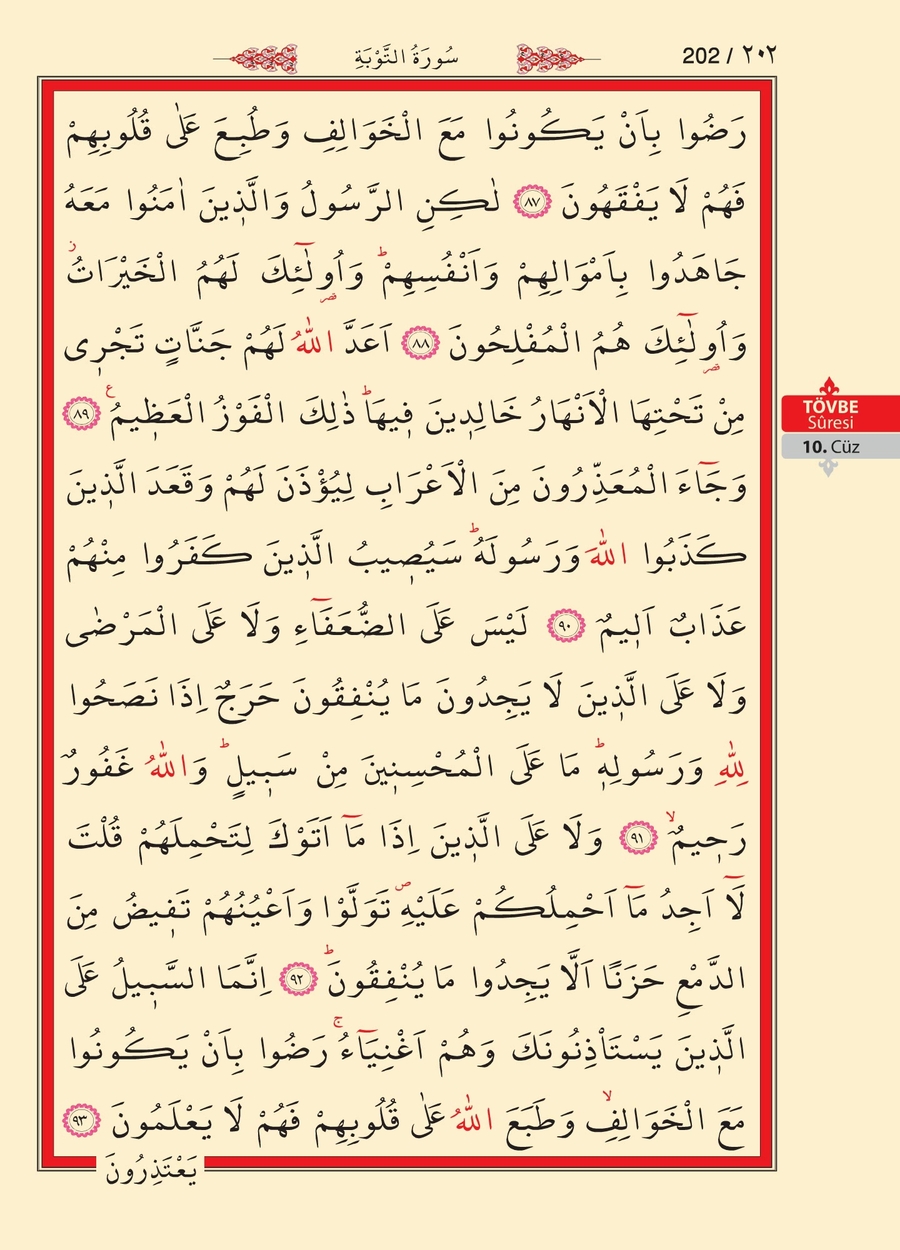 سُورَةُ التَّوْبَةِ
202 / ٢٠٢
رَضُوا بِاَنْ يَكُونُوا مَعَ الْخَوَالِفِ وَطُبِعَ عَلٰى قُلُوبِهِمْ
فَهُمْ لَا يَفْقَهُونَ ﴿٨٧﴾ لٰكِنِ الرَّسُولُ وَالَّذ۪ينَ اٰمَنُوا مَعَهُ
جَاهَدُوا بِاَمْوَالِهِمْ وَاَنْفُسِهِمْۜ وَاُو۬لٰٓئِكَ لَهُمُ الْخَيْرَاتُۘ
وَاُو۬لٰٓئِكَ هُمُ الْمُفْلِحُونَ ﴿٨٨﴾ اَعَدَّ اللّٰهُ لَهُمْ جَنَّاتٍ تَجْر۪ي
مِنْ تَحْتِهَا الْاَنْهَارُ خَالِد۪ينَ ف۪يهَاۜ ذٰلِكَ الْفَوْزُ الْعَظ۪يمُ۟ ﴿٨٩﴾
وَجَٓاءَ الْمُعَذِّرُونَ مِنَ الْاَعْرَابِ لِيُؤْذَنَ لَهُمْ وَقَعَدَ الَّذ۪ينَ
كَذَبُوا اللّٰهَ وَرَسُولَهُۜ سَيُص۪يبُ الَّذ۪ينَ كَفَرُوا مِنْهُمْ
عَذَابٌ اَل۪يمٌ ﴿٩٠﴾ لَيْسَ عَلَى الضُّعَفَٓاءِ وَلَا عَلَى الْمَرْضٰى
وَلَا عَلَى الَّذ۪ينَ لَا يَجِدُونَ مَا يُنْفِقُونَ حَرَجٌ اِذَا نَصَحُوا
لِلّٰهِ وَرَسُولِه۪ۜ مَا عَلَى الْمُحْسِن۪ينَ مِنْ سَب۪يلٍۜ وَاللّٰهُ غَفُورٌ
رَح۪يمٌۙ ﴿٩١﴾ وَلَا عَلَى الَّذ۪ينَ اِذَا مَٓا اَتَوْكَ لِتَحْمِلَهُمْ قُلْتَ
لَٓا اَجِدُ مَٓا اَحْمِلُكُمْ عَلَيْهِۖ تَوَلَّوْا وَاَعْيُنُهُمْ تَف۪يضُ مِنَ
الدَّمْعِ حَزَنًا اَلَّا يَجِدُوا مَا يُنْفِقُونَۜ ﴿٩٢﴾ اِنَّمَا السَّب۪يلُ عَلَى
الَّذ۪ينَ يَسْتَأْذِنُونَكَ وَهُمْ اَغْنِيَٓاءُۚ رَضُوا بِاَنْ يَكُونُوا
مَعَ الْخَوَالِفِۙ وَطَبَعَ اللّٰهُ عَلٰى قُلُوبِهِمْ فَهُمْ لَا يَعْلَمُونَ ﴿٩٣﴾
يَعْتَذِرُونَ
TÖVBE
Sûresi
10. Cüz